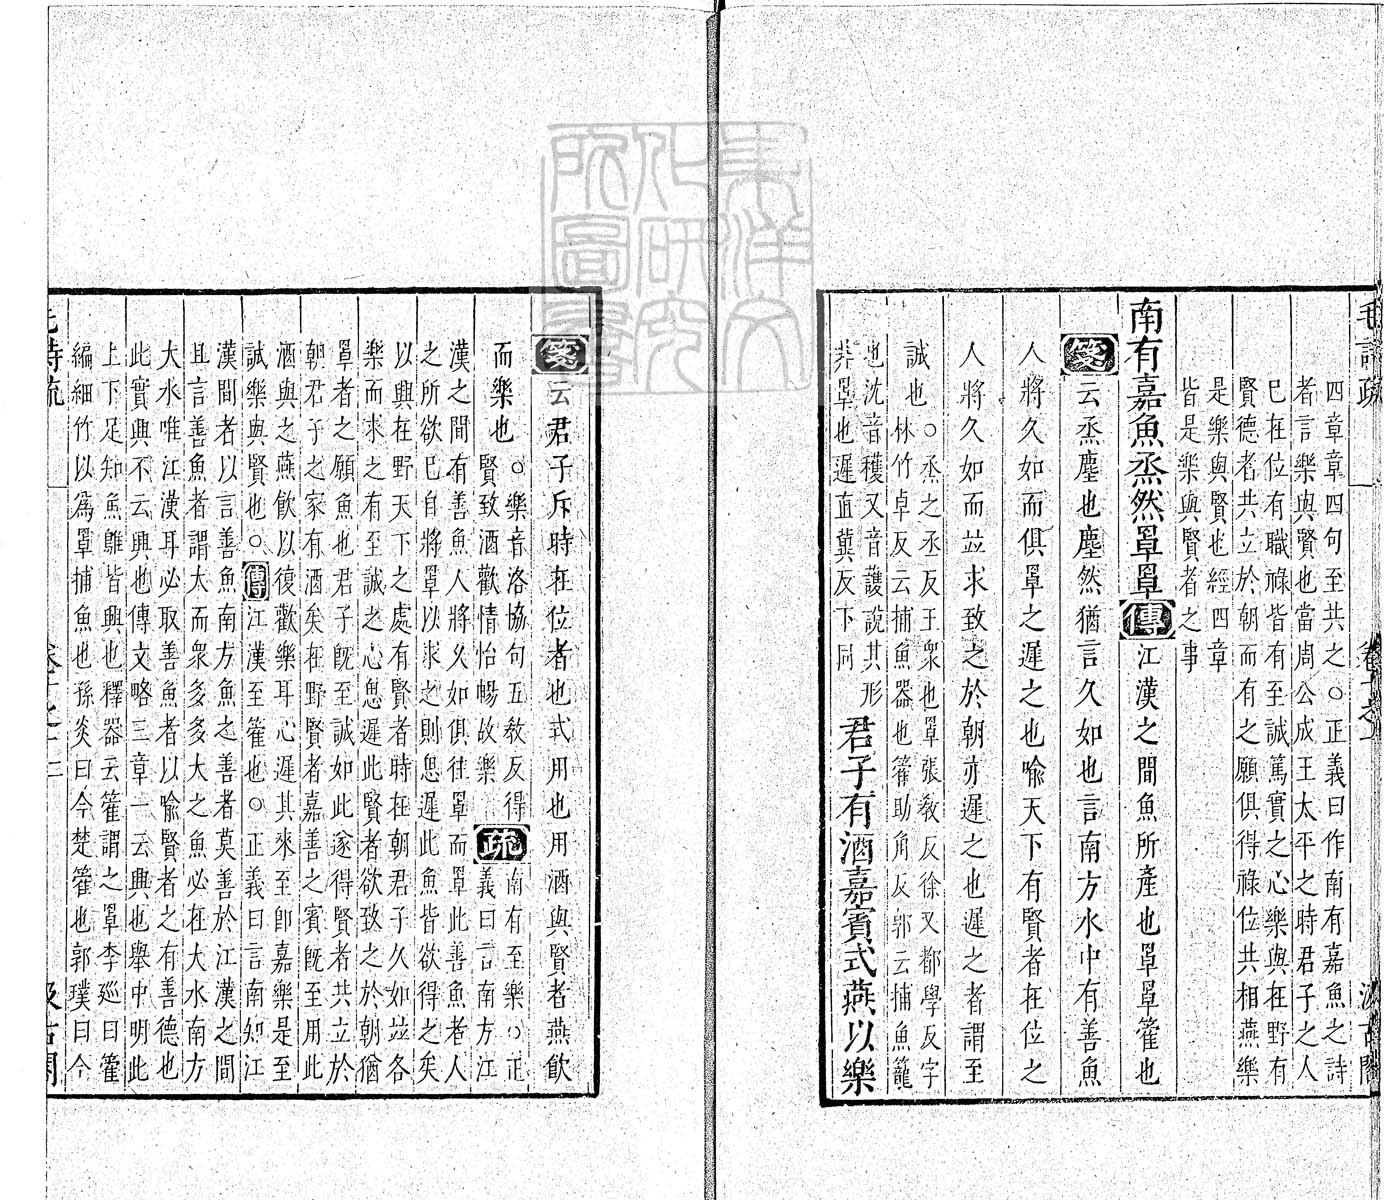 毛詩疏
四章章四句至共之○正義曰作南有嘉魚之詩
者言樂與賢也當周公成王太平之時君子之人
巳在位有職祿皆有至誠篤實之心樂與在野有
賢德者共立於朝而有之願俱得祿位共相燕樂
是樂與賢也經四章
皆是樂與賢者之事
南有嘉魚烝然罩罩傳江漢之間魚所產也罩罩籗也
箋云烝塵也塵然猶言久如也言南方水中有善魚
人將久如而俱罩之遲之也喻天下有賢者在位之
人將久如而並求致之於朝亦遲之也遲之者謂至
誠也○烝之丞反王衆也罩張敎反徐又都學反字
林竹卓反云捕魚器也籗助角反郭云捕魚籠
也沈音穫又音護說其形
非罩也遲直冀反下同
君子有酒嘉賓式燕以樂
箋云君子斥時在位者也式用也用酒與賢者燕飲
而樂也○樂音洛協句五敎反得
賢致酒歡情怡暢故樂
疏南有至樂○正
義曰言南方江
漢之間有善魚人將久如俱往罩而罩此善魚者人
之所欲巳自將罩以求之則思遲此魚皆欲得之矣
以興在野天下之處有賢者時在朝君子久如並各
樂而求之有至誠之心思遲此賢者欲致之於朝猶
罩者之願魚也君子旣至誠如此遂得賢者共立於
朝君子之家有酒矣在野賢者嘉善之賓旣至用此
酒與之燕飲以復歡樂耳心遲其來至卽嘉樂是至
誠樂與賢也○傳江漢至籗也○正義曰言南知江
漢間者以言善魚南方魚之善者莫善於江漢之間
且言善魚者謂大而衆多多大之魚必在大水南方
大水唯江漢耳必取善魚者以喻賢者之有善德也
此實興不云興也傳文略三章一云興也舉中明此
上下足知魚鵻皆興也釋器云籗謂之罩李巡曰籗
編細竹以爲罩捕魚也孫炎曰今楚籗也郭璞曰今